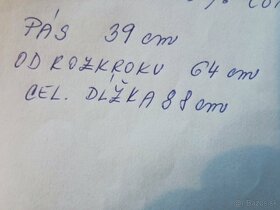 PÁS 39 cm
OD ROZKROKU 64 cm
CEL. DLŽKA 88 cm
© bazos.sk